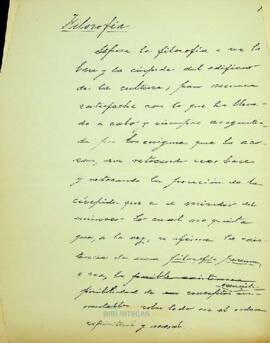 1
Filosofía
Aspira la filosofía a ser la
base y la cúspide del edificio
de la cultura, pero nunca
satisfecha con lo que ha lleva-
do a cabo y siempre
por los enigmas que la aco-
san, va retocando sus bases
y retocando la posición de la
cúspide que es el mirador del
universo lo cual no quita
que, a la vez, se afirme la exis-
tencia de una filosofía perenne,
o sea, la posible existencia
posibilidad de unos conceptos
sobre todo en el orden
espiritual y moral.
BIBLIOTECAS